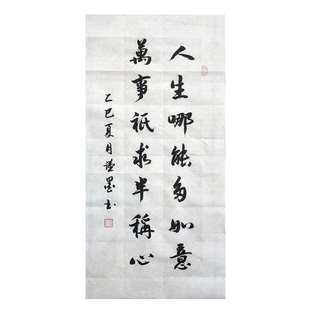 人生哪能多如意
萬事祇求半稱心
乙巳夏月逸墨书